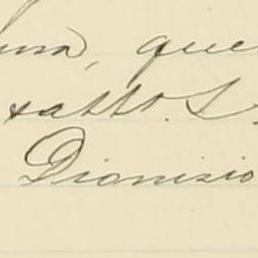 una, que
exatto. S.
Dionizio